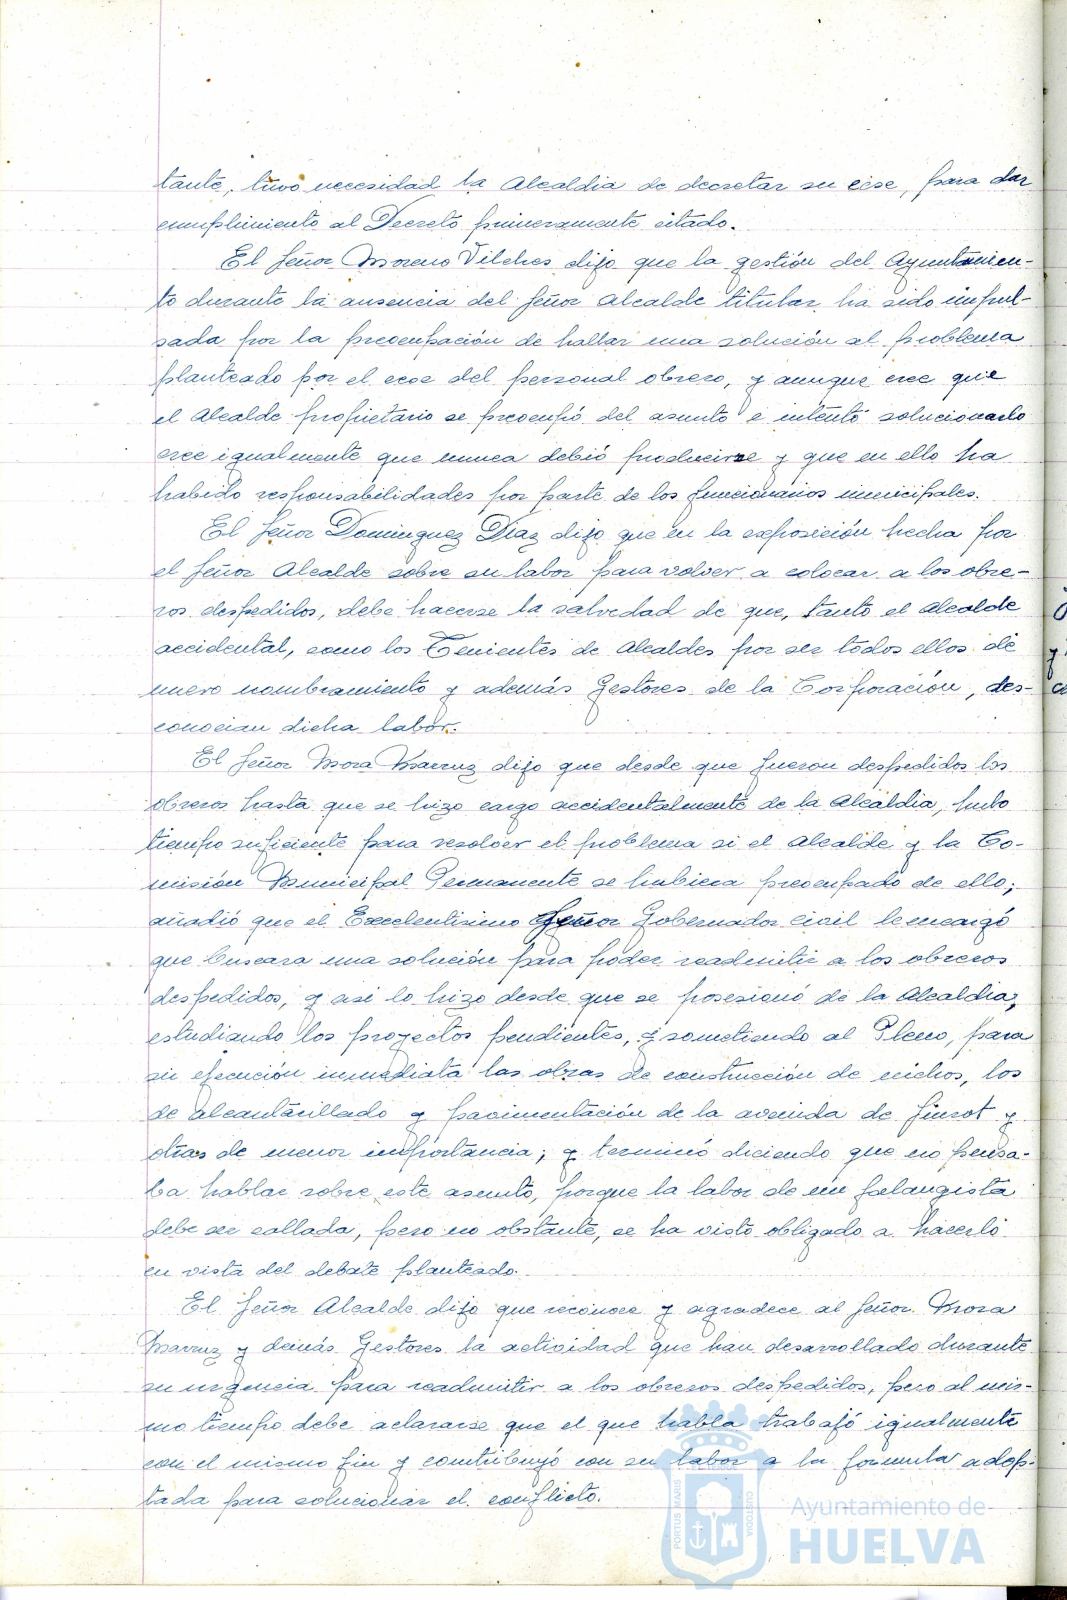 tante, tuvo necesidad la Alcaldia de decretar su cese, para dar
cumplimiento al Decreto primeramente citado.
El Señor Moreno Vilches dijo que la gestión del Ayuntamien-
to durante la ausencia del Señor Alcalde titular ha sido impul-
sada por la preocupación de hallar una solución al problema
planteado por el cese del personal obrero, y aunque cree que
el Alcalde propietario se preocupó del asunto e intentó solucionarlo
cree igualmente que nunca debió producirse y que en ello ha
habido responsabilidades por parte de los funcionarios municipales.
El Señor Dominguez Diaz dijo que en la exposición hecha por
el Señor Alcalde sobre su labor para volver a colocar a los obre-
ros despedidos, debe hacerse la salvedad de que, tanto el Alcalde
accidental, como los Tenientes de Alcaldes por ser todos ellos de
nuevo nombramiento y además Gestores de la Corporación, des-
conocian dicha labor.
El Señor Mora Marruz dijo que desde que fueron despedidos los
obreros hasta que se hizo cargo accidentalmente de la Alcaldia, hubo
tiempo suficiente para resolver el problema si el Alcalde y la Co-
misión Municipal Permanente se hubiera preocupado de ello;
añadió que el Excelentisimo Señor Gobernador civil le encargó
que buscara una solución para poder readmitir a los obreros
despedidos, y asi lo hizo desde que se posesionó de la Alcaldia,
estudiando los proyectos pendientes, y sometiendo al Pleno, para
su ejecución inmediata las obras de construcción de nichos, los
de alcantarillado y pavimentación de la avenida de y
otras de menor importancia; y terminó diciendo que no pensa-
ba hablar sobre este asunto, porque la labor de un falangista
debe ser callada, pero no obstante, se ha visto obligado a hacerlo
en vista del debate planteado.
El Señor Alcalde dijo que reconoce y agradece al Señor Mora
Marruz y demás Gestores la actividad que han desarrollado durante
su urgencia para readmitir a los obreros despedidos, pero al mis-
mo tiempo debe aclararse que el que habla trabajó igualmente
con el mismo fin y contribuyó con su labor a la formula adop-
tada para solucionar el conflicto.
PORTUS MARIS
CUSTODIA
Ayuntamiento de
HUELVA